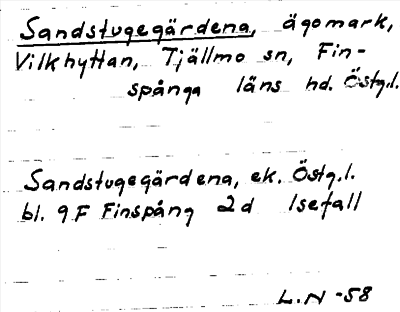 Sandstugegärdena, ägomark,
Vilkhyttan, Tjällmo sn, Fin-
spånga läns hd. Östg.l.
Sandstugegärdena, ek. Östg.l.
bl. 9F Finspång 2d Isefall
L.N -58